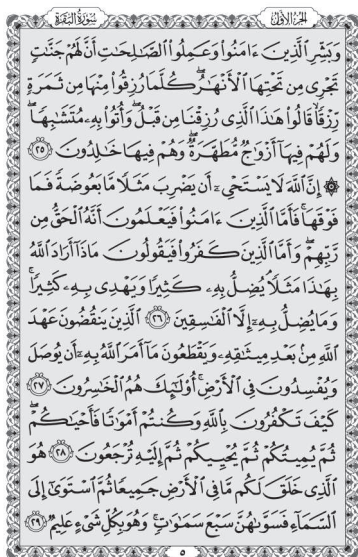 سُورَةُ البَقَرَةِ الجُزْءُ الأَوَّلُ
وَبَشِّرِ ٱلَّذِينَ ءَامَنُوا۟ وَعَمِلُوا۟ ٱلصَّـٰلِحَـٰتِ أَنَّ لَهُمْ جَنَّـٰتٍ
تَجْرِى مِن تَحْتِهَا ٱلْأَنْهَـٰرُ ۖ كُلَّمَا رُزِقُوا۟ مِنْهَا مِن ثَمَرَةٍ
رِّزْقًا ۙ قَالُوا۟ هَـٰذَا ٱلَّذِى رُزِقْنَا مِن قَبْلُ ۖ وَأُتُوا۟ بِهِۦ مُتَشَـٰبِهًا ۖ
وَلَهُمْ فِيهَآ أَزْوَٰجٌ مُّطَهَّرَةٌ ۖ وَهُمْ فِيهَا خَـٰلِدُونَ ٢٥
۞ إِنَّ ٱللَّهَ لَا يَسْتَحْىِۦٓ أَن يَضْرِبَ مَثَلًا مَّا بَعُوضَةً فَمَا
فَوْقَهَا ۚ فَأَمَّا ٱلَّذِينَ ءَامَنُوا۟ فَيَعْلَمُونَ أَنَّهُ ٱلْحَقُّ مِن
رَّبِّهِمْ ۖ وَأَمَّا ٱلَّذِينَ كَفَرُوا۟ فَيَقُولُونَ مَاذَآ أَرَادَ ٱللَّهُ
بِهَـٰذَا مَثَلًا ۘ يُضِلُّ بِهِۦ كَثِيرًا وَيَهْدِى بِهِۦ كَثِيرًا ۚ
وَمَا يُضِلُّ بِهِۦٓ إِلَّا ٱلْفَـٰسِقِينَ ٢٦ ٱلَّذِينَ يَنقُضُونَ عَهْدَ
ٱللَّهِ مِنۢ بَعْدِ مِيثَـٰقِهِۦ وَيَقْطَعُونَ مَآ أَمَرَ ٱللَّهُ بِهِۦٓ أَن يُوصَلَ
وَيُفْسِدُونَ فِى ٱلْأَرْضِ ۚ أُو۟لَـٰٓئِكَ هُمُ ٱلْخَـٰسِرُونَ ٢٧
كَيْفَ تَكْفُرُونَ بِٱللَّهِ وَكُنتُمْ أَمْوَٰتًا فَأَحْيَـٰكُمْ ۖ
ثُمَّ يُمِيتُكُمْ ثُمَّ يُحْيِيكُمْ ثُمَّ إِلَيْهِ تُرْجَعُونَ ٢٨ هُوَ
ٱلَّذِى خَلَقَ لَكُم مَّا فِى ٱلْأَرْضِ جَمِيعًا ثُمَّ ٱسْتَوَىٰٓ إِلَى
ٱلسَّمَآءِ فَسَوَّىٰهُنَّ سَبْعَ سَمَـٰوَٰتٍ ۚ وَهُوَ بِكُلِّ شَىْءٍ عَلِيمٌ ٢٩
٥